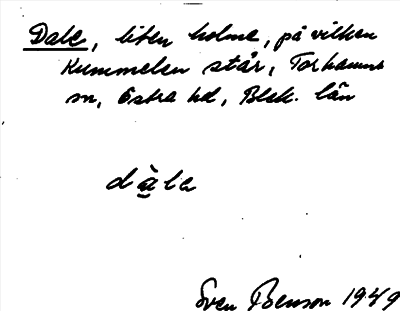 Dale, liten holme, på vilken
Kummelen står, Torhamns
sn, Östra hd, Blek. län
dàle
Sven Benson 1949